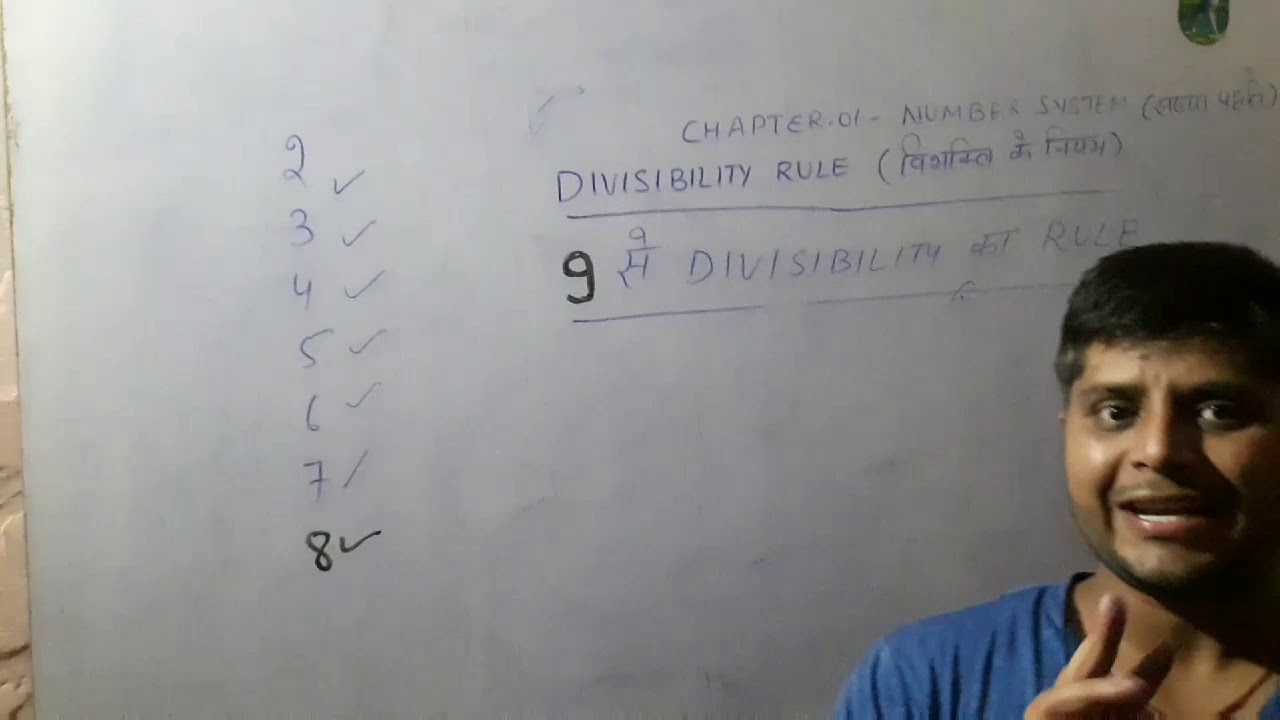 CHAPTER.01 - NUMBER SYSTEM (
DIVISIBILITY RULE (विभक्ति के नियम)
9 से DIVISIBILITY का RULE
2 ✓
3 ✓
4 ✓
5 ✓
6 ✓
7 /
8 ✓